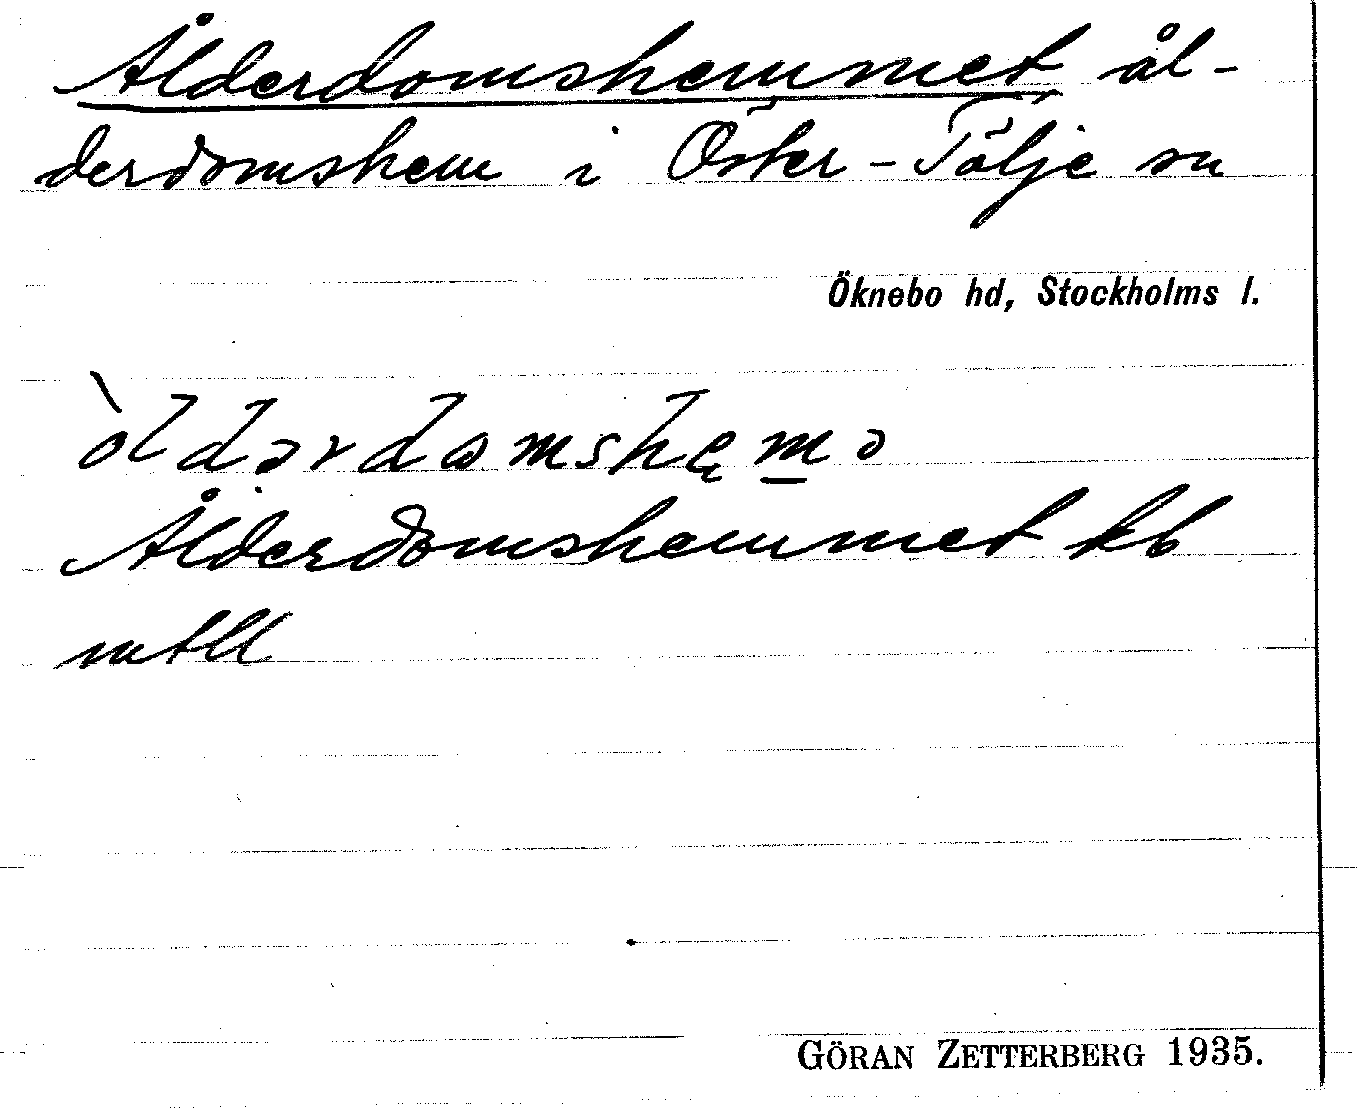 Ålderdomshemmet ål-
derdomshem i Öster-Tälje sn
Öknebo hd, Stockholms l.
òldərdωmshęm̲ə
Ålderdomshemmet kb
mtll
GÖRAN ZETTERBERG 1935.